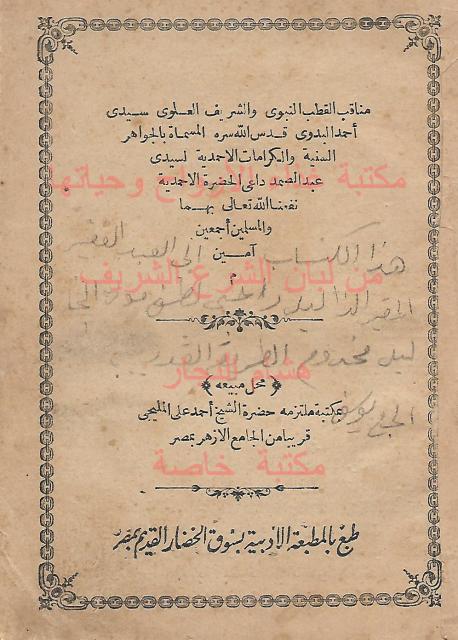 مناقب القطب النبوى والشريف العلوى سيدى
أحمد البدوى قدس الله سره المسماة بالجواهر
السنية والكرامات الاحمدية لسيدى
عبد الصمد داعى الحضرة الاحمدية
نفعنا الله تعالى بهما
والمسلمين أجمعين
آمين
م
مكتبة غذاء الأرواح وحياتها
هذا الكتاب الى العبد الفقير
من لبان الشرع الشريف
هشام النجار
﴿محل مبيعه﴾
بمكتبة ملتزمه حضرة الشيخ أحمد على المليجى
قريبا من الجامع الازهر بمصر
مكتبة خاصة
طبع بالمطبعة الازبية بسوق الخضار القديم بمصر